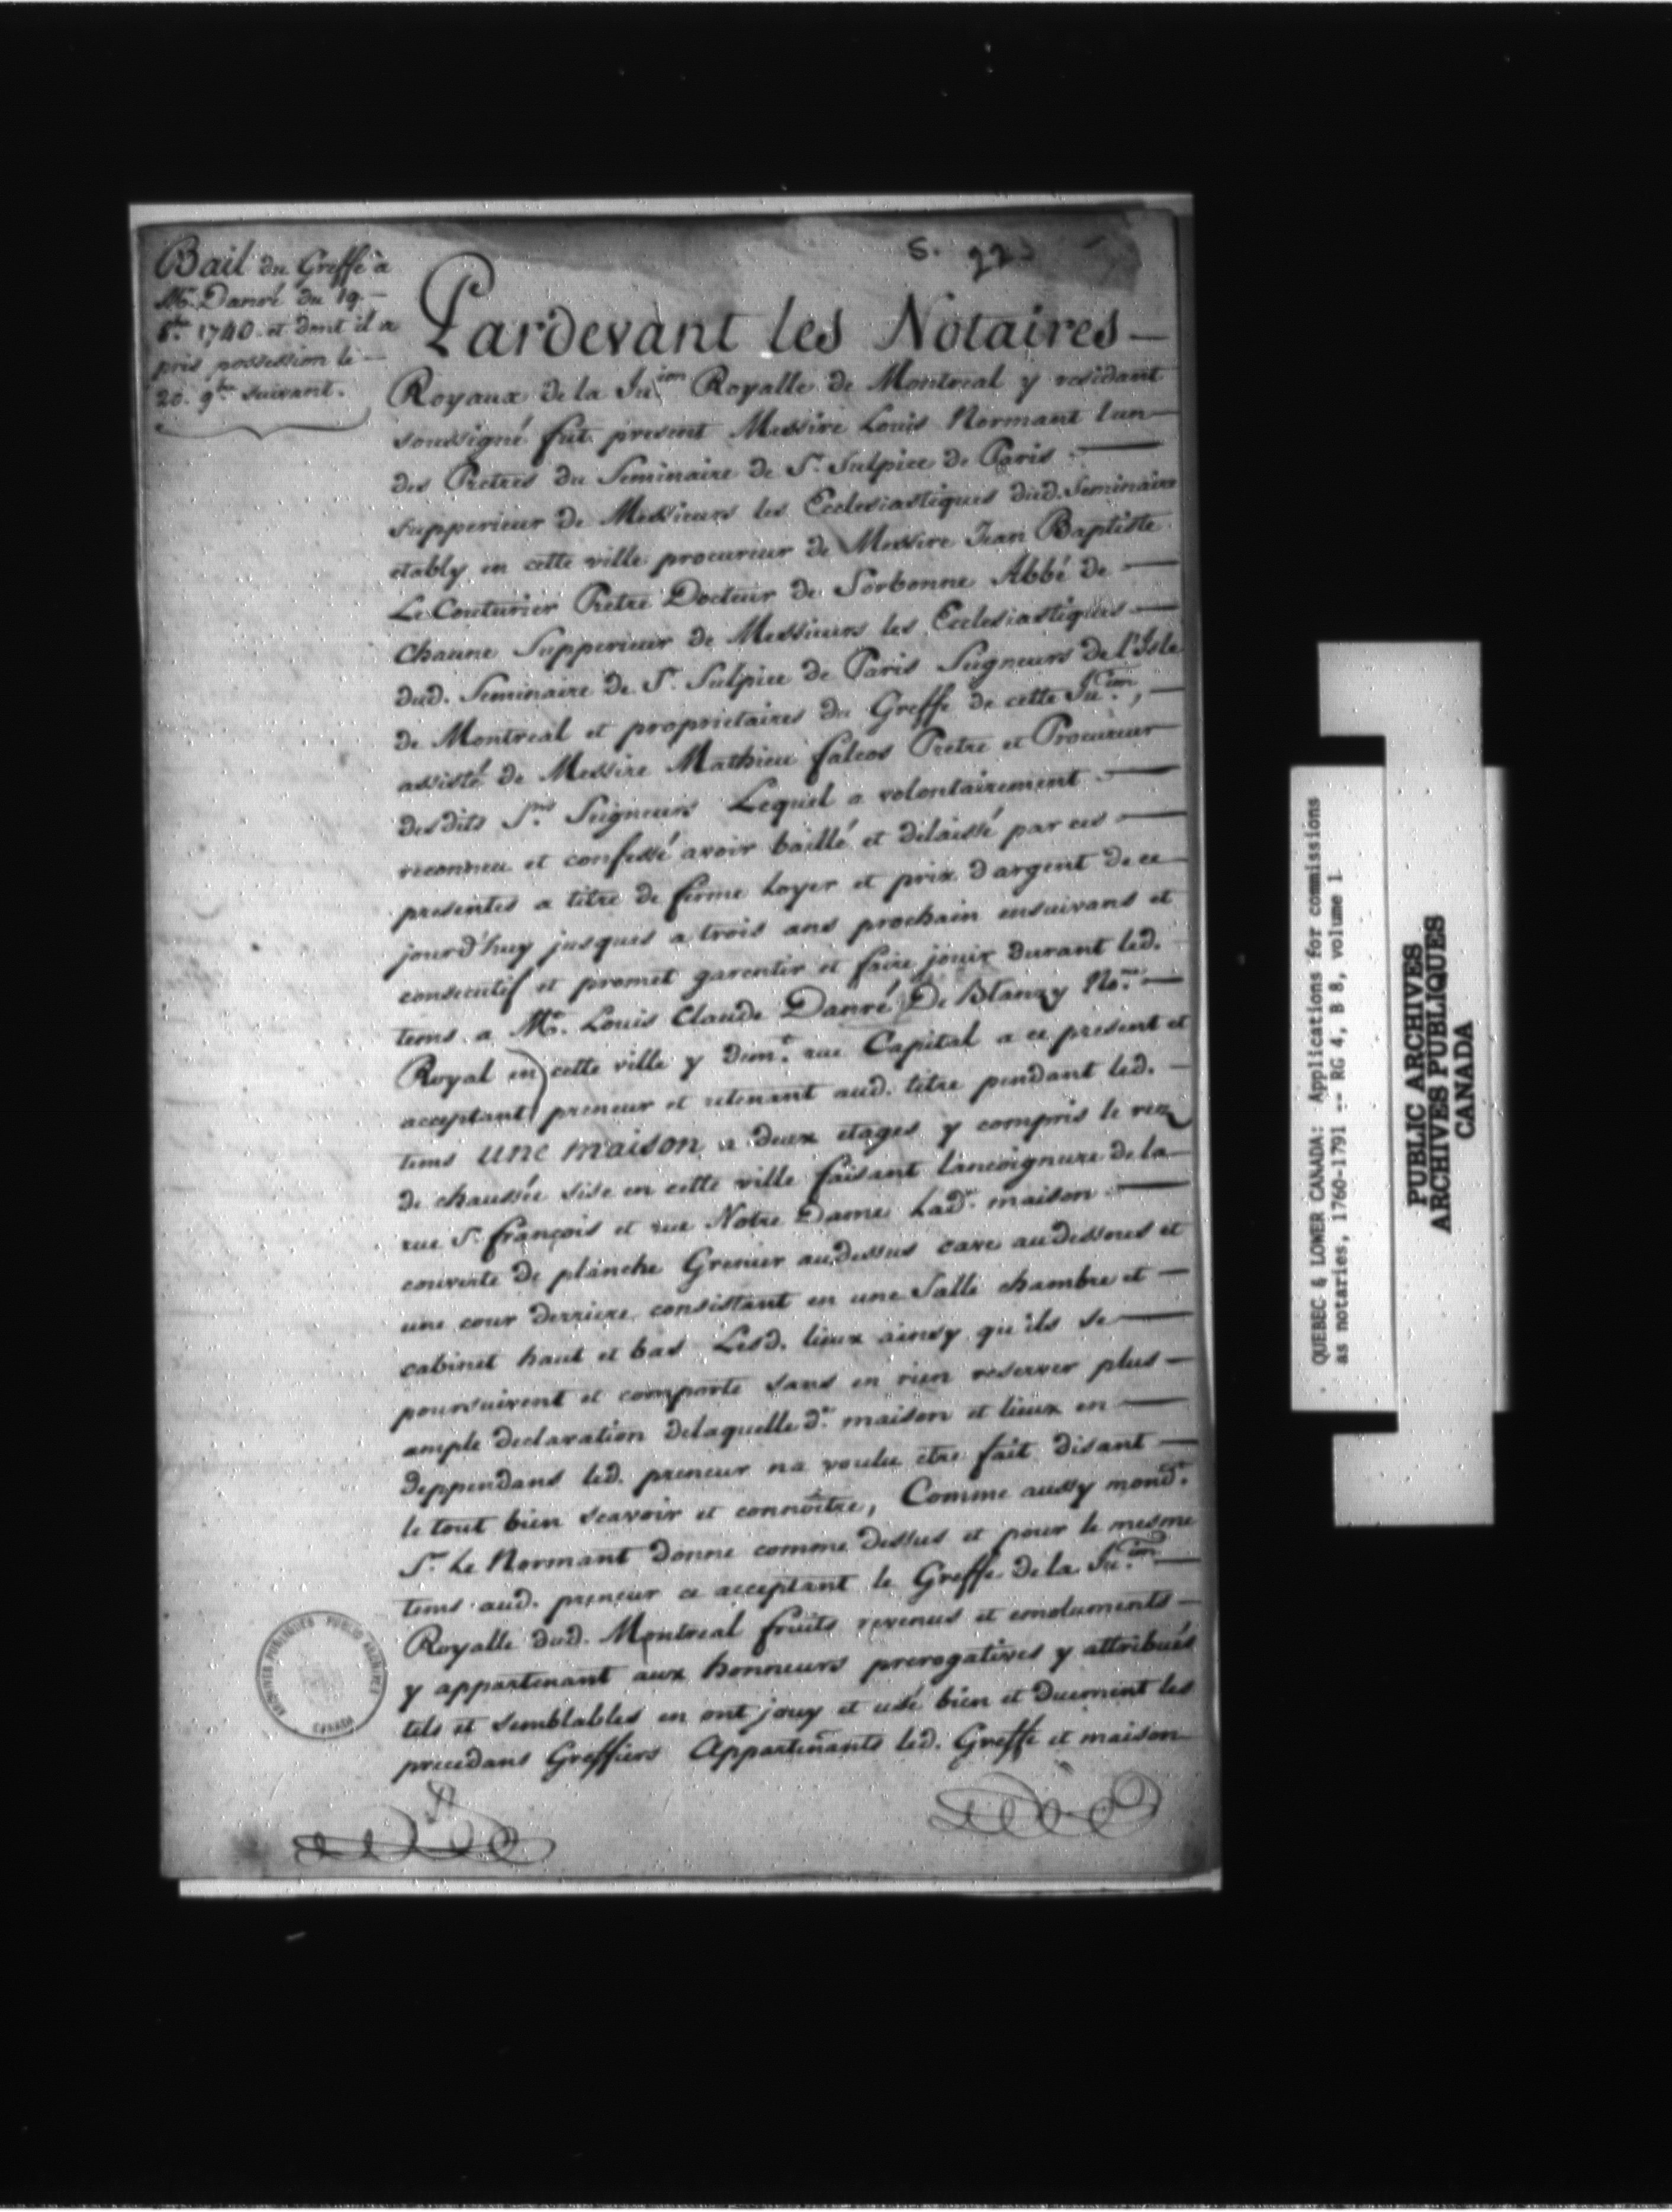 S. 22
Bail du Greffe à
Mr. Danré du 19.
8bre. 1740. et dont il a
pris possession le
20. 9bre suivant.
Pardevant les Notaires
Royaux de la Juon Royalle de Montreal y residant
soussigné fut present Messire Louis Normant l'un
des Pretres du Seminaire de St. Sulpice de Paris
supperieur de Messieurs les Ecclesiastiques dud. Seminaire
etably en cette ville procureur de Messire Jean Baptiste
Le Couturier Pretre Docteur de Sorbonne Abbé de
Chaune Supperieur de Messieurs les Ecclesiastiques
dud. Seminaire de St. Sulpice de Paris Seigneurs de l'Isle
de Montreal et proprietaires du Greffe de cette Juon,
assisté de Messire Mathieu falcos Pretre et Procureur
desdits Srs. Seigneurs Lequel a volontairement
reconneu et confessé avoir baillé et délaissé par ces
presentes a titre de ferme Loyer et prix d'argent de ce
jourd'huy jusques a trois ans prochain ensuivans et
consecutif et promet garentir et faire jouir durant led.
tems a Mr. Louis Claude Danré De Blanzy Nore.
Royal en cette ville y demt. rue Capital a ce present et
acceptant preneur et retenant aud. titre pendant led.
tems une maison a deux etages y compris le rez
de chaussée sise en cette ville faisant lancoignure de la
rue St. françois et rue Notre Dame Lade. maison
couverte de planche Grenier audessus cave audessous et
une cour derriere consistant en une Salle chambre et
cabinet haut et bas Lesd. lieux ainsy qu'ils se
poursuivent et comporte sans en rien reserver plus
ample declaration delaquelle de. maison et lieux en
deppendans led. preneur na voulu etre fait disant
le tout bien scavoir et connoître, Comme aussy mond.
Sr. Le Normant donne comme dessus et pour le mesme
tems aud. preneur ce acceptant le Greffe de la Juon
Royalle dud. Montreal fruits revenus et emoluments
y appartenant aux honneurs prerogatives y attribués
tels et semblables en ont jouy et usé bien et duement les
precedans Greffiers Appartenants led. Greffe et maison
ARCHIVES PUBLIQUES PUBLIC ARCHIVES
CANADA
QUEBEC & LOWER CANADA: Applications for commissions
as notaries, 1760-1791 -- RG 4, B 8, volume 1
PUBLIC ARCHIVES
ARCHIVES PUBLIQUES
CANADA